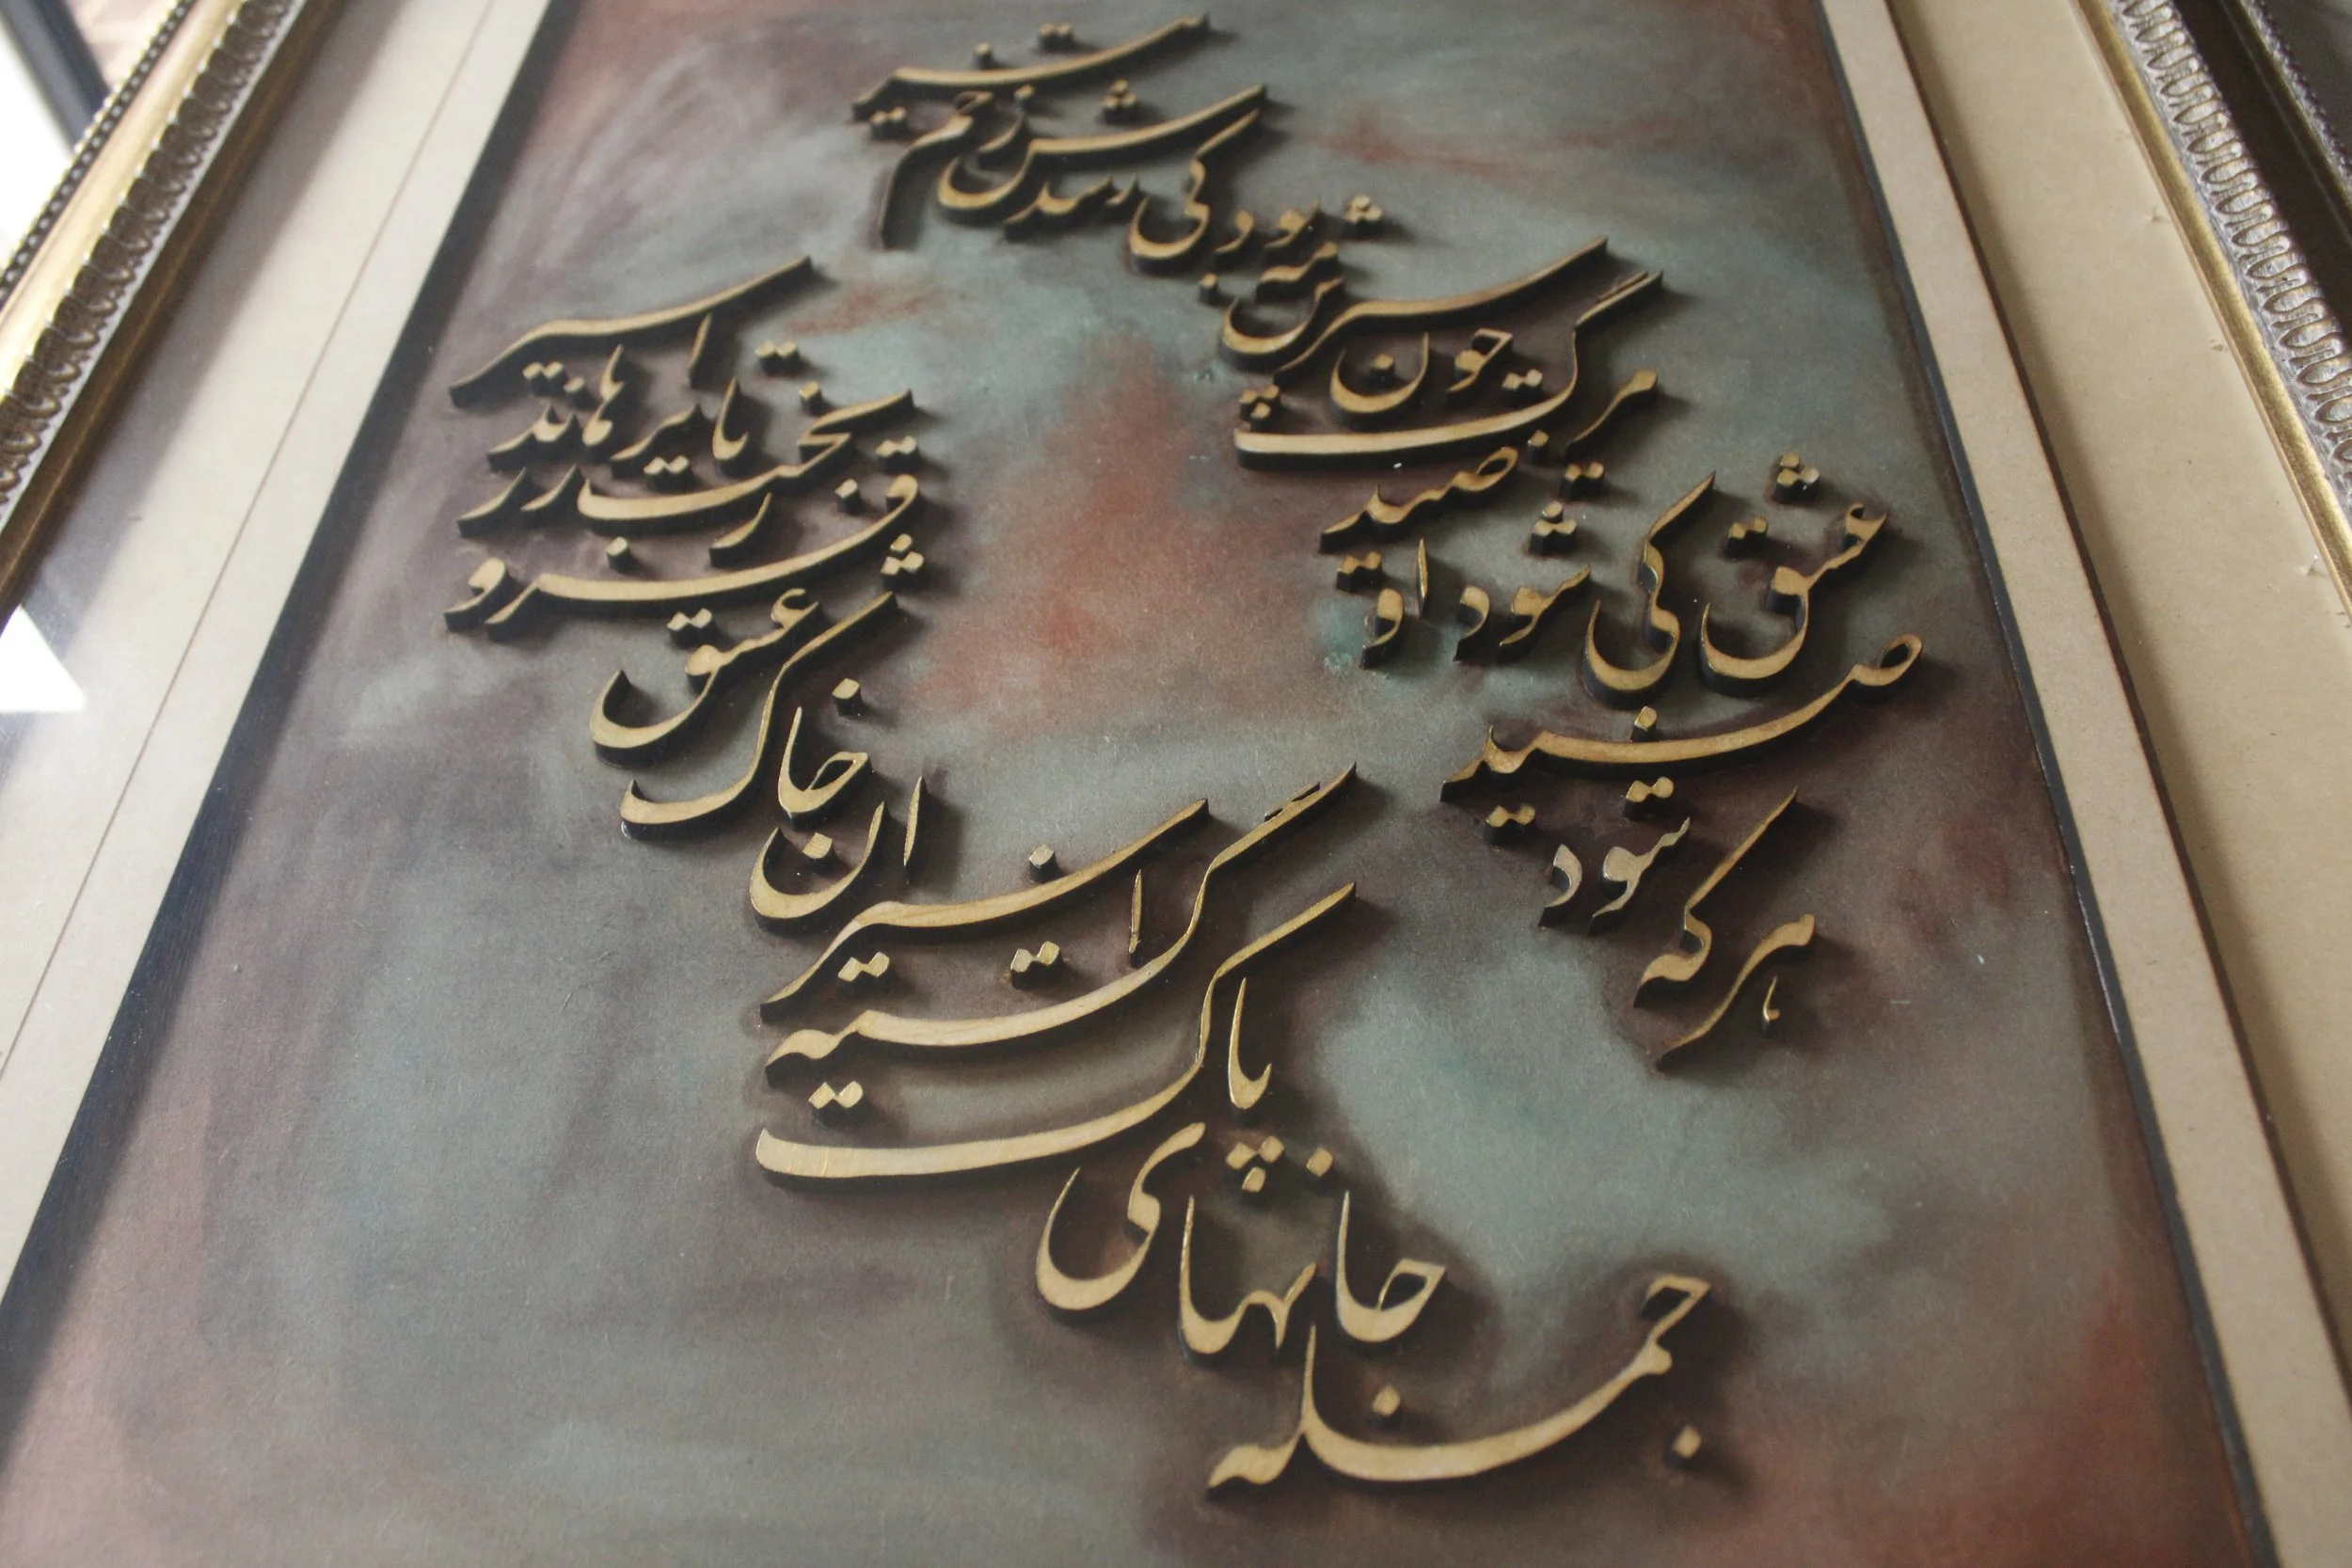 هر که شود صید عشق کی شود او صید مرگ
چون سپرش مه بود کی رسدش زخم تیر
جمله جانهای پاک گشته اسیران خاک
عشق فرو ریخت زر تا برهاند اسیر